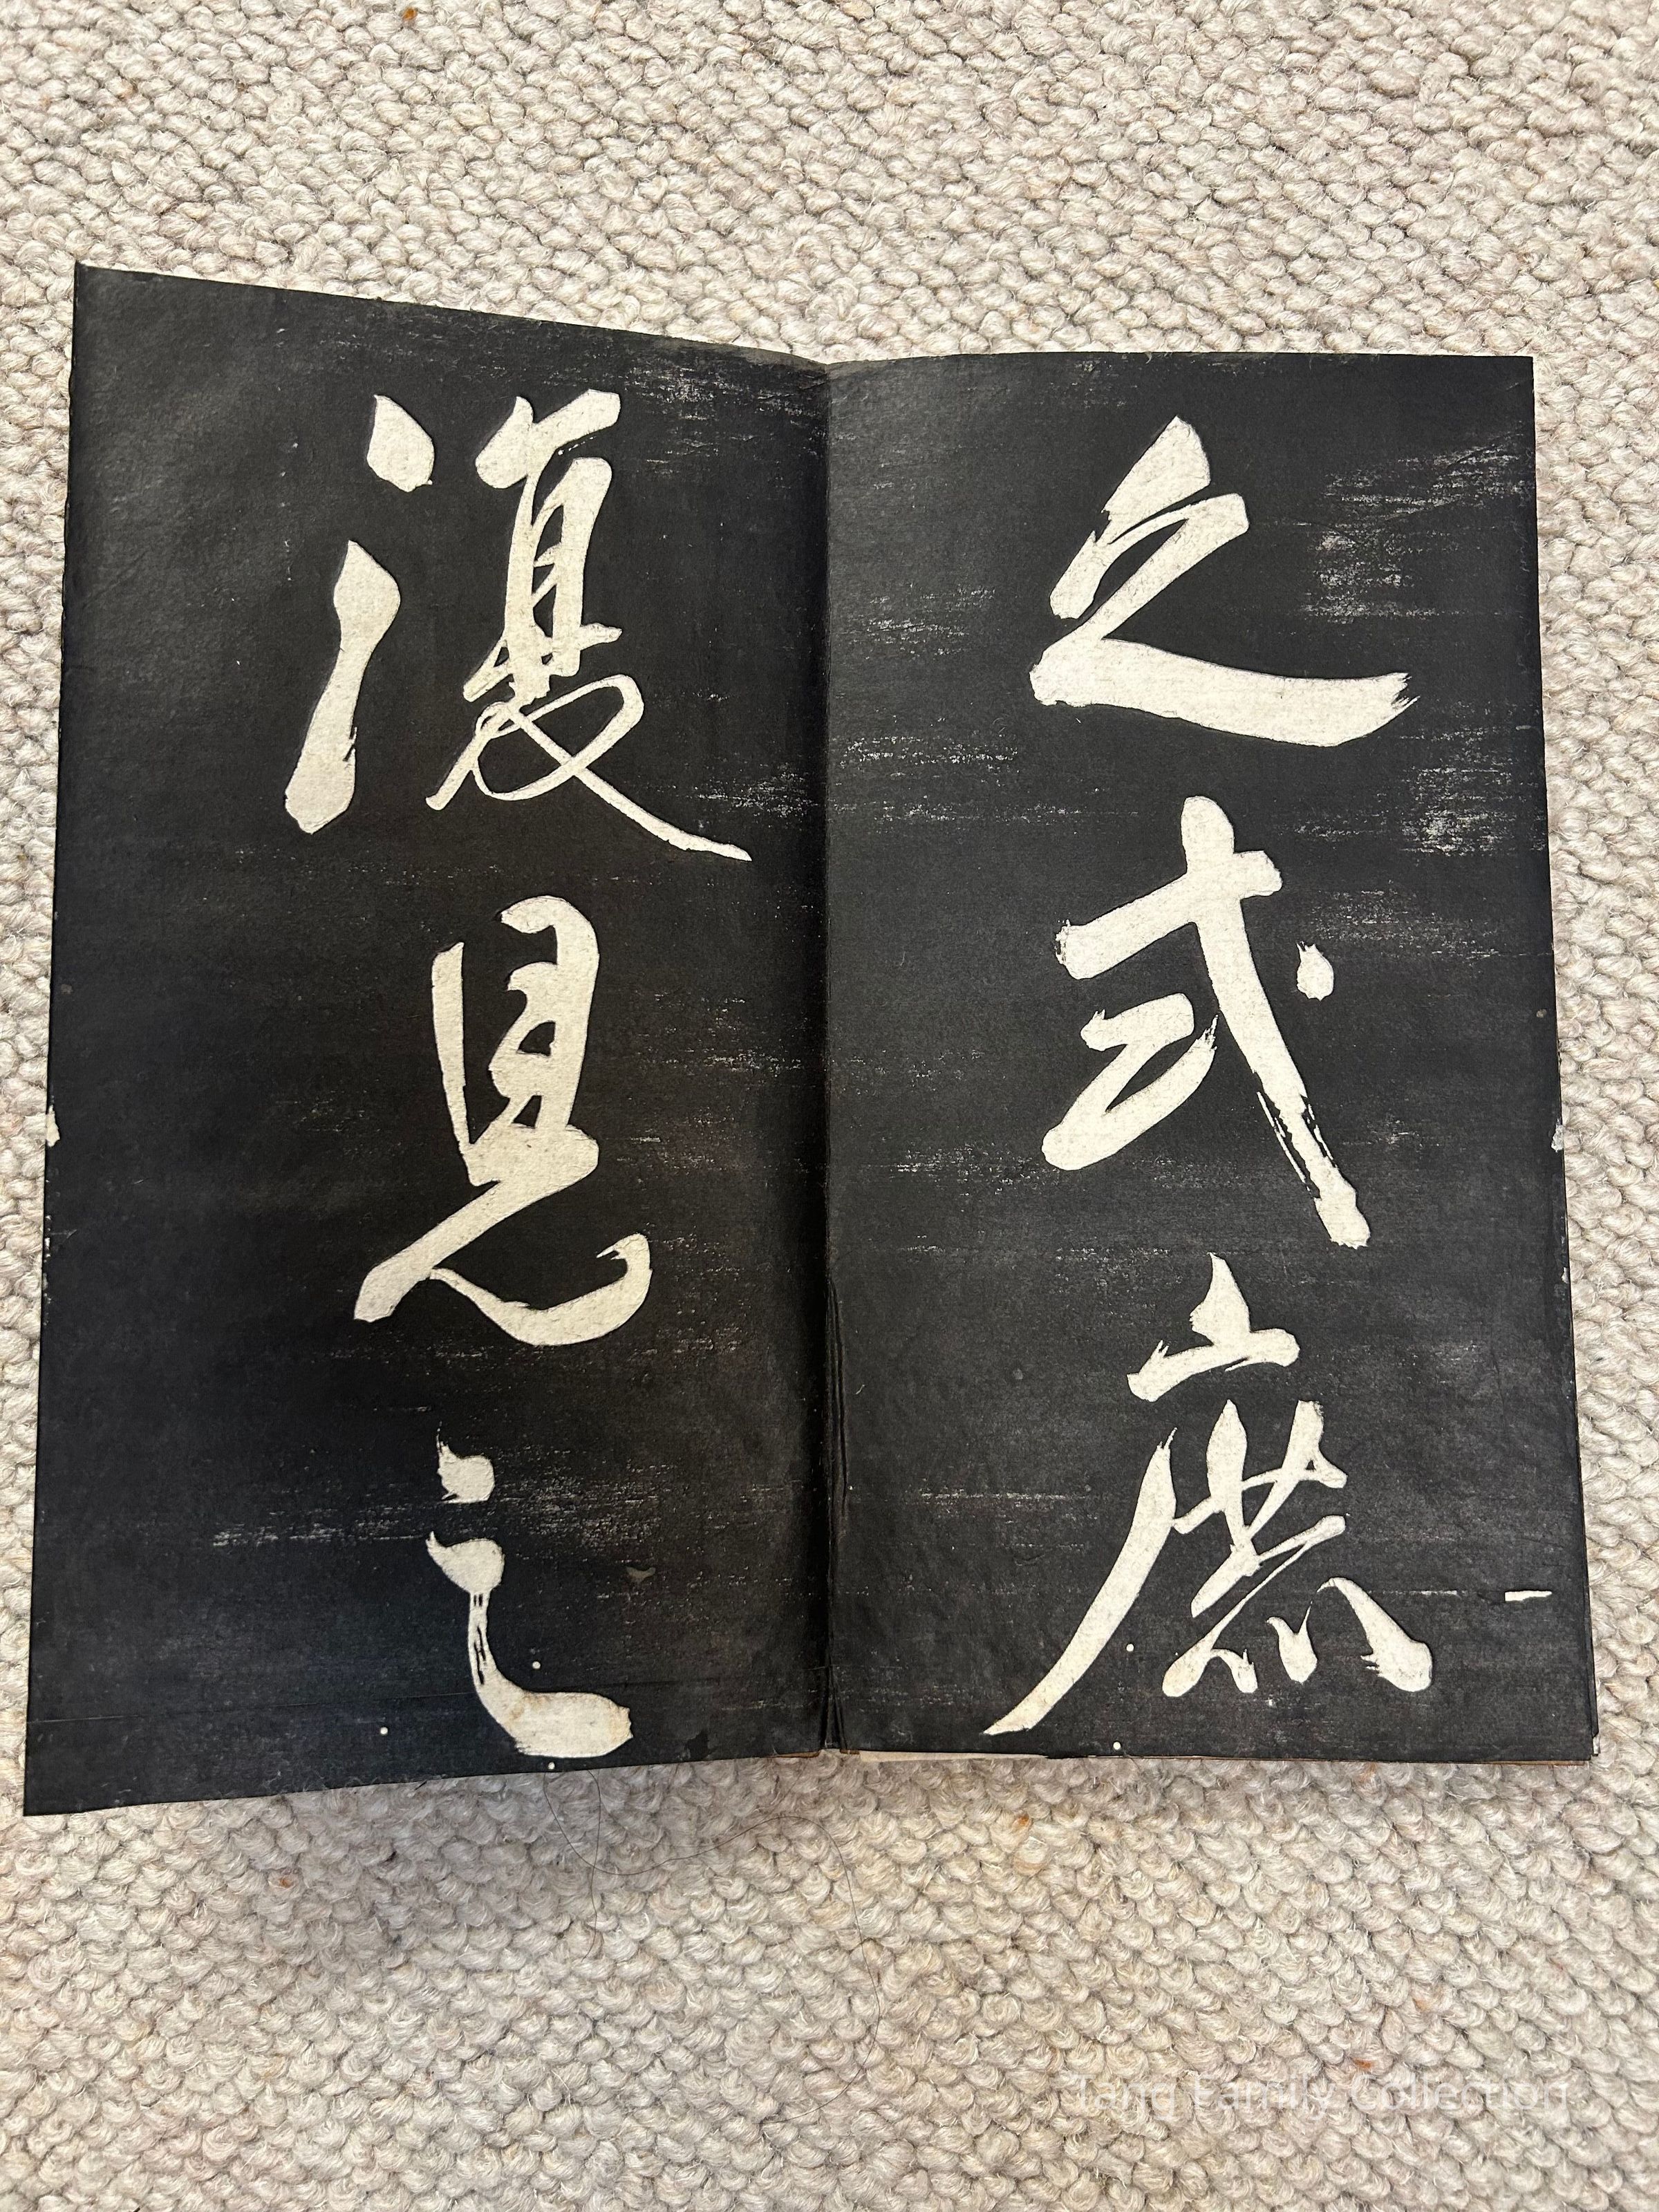 之式庶
復見之
Tang Family Collection